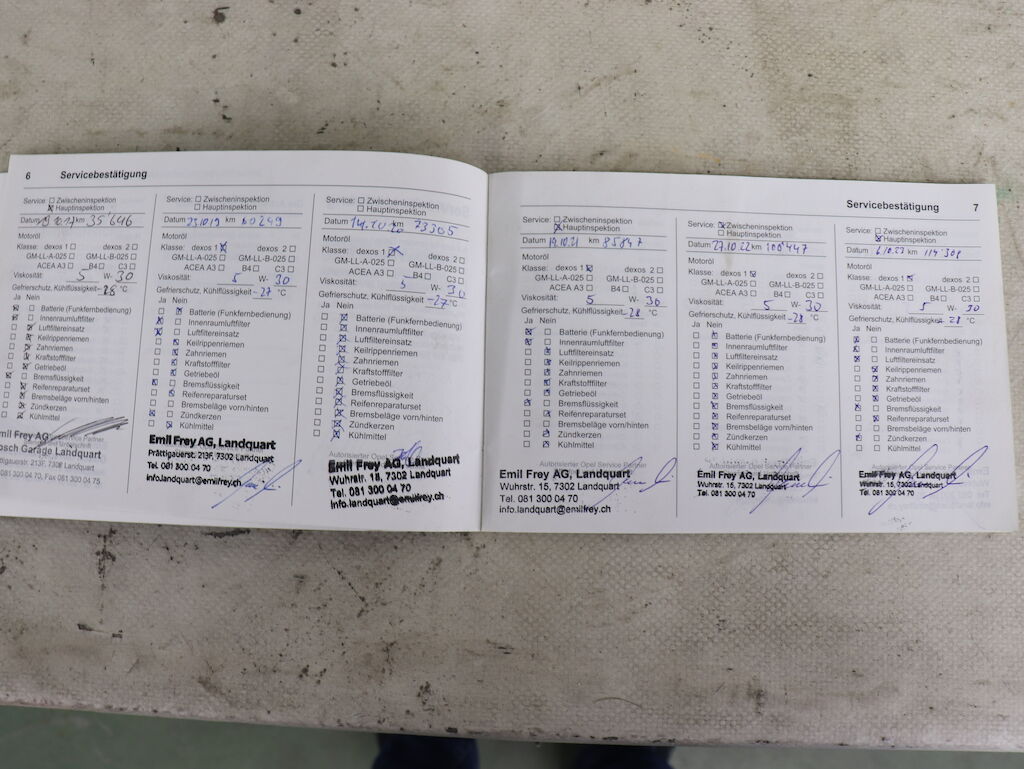 6 Servicebestätigung
Service: Zwischeninspektion
Hauptinspektion
Datum 35'646
Motoröl
Klasse: dexos 1 dexos 2
GM-LL-A-025 GM-LL-B-025
ACEA A3 B4 C3
Viskosität 5 W- 30
Gefrierschutz, Kühlflüssigkeit -28 °C
Ja Nein
Batterie (Funkfernbedienung)
Innenraumluftfilter
Luftfiltereinsatz
Keilrippenriemen
Zahnriemen
Kraftstofffilter
Getriebeöl
Bremsflüssigkeit
Reifenreparaturset
Bremsbeläge vorn/hinten
Zündkerzen
Kühlmittel
Emil Frey AG
Bosch Garage Landquart
Prättigauerstr. 213F, 7302 Landquart
081 300 04 70, Fax 081 300 04 75
Service: Zwischeninspektion
Hauptinspektion
Datum 23.10.19 km 60249
Motoröl
Klasse: dexos 1 dexos 2
GM-LL-A-025 GM-LL-B-025
ACEA A3 B4 C3
Viskosität: 5 W- 30
Gefrierschutz, Kühlflüssigkeit -27 °C
Ja Nein
Batterie (Funkfernbedienung)
Innenraumluftfilter
Luftfiltereinsatz
Keilrippenriemen
Zahnriemen
Kraftstofffilter
Getriebeöl
Bremsflüssigkeit
Reifenreparaturset
Bremsbeläge vorn/hinten
Zündkerzen
Kühlmittel
Emil Frey AG, Landquart
Prättigauerstr. 213F, 7302 Landquart
Tel. 081 300 04 70
info.landquart@emilfrey.ch
Service: Zwischeninspektion
Hauptinspektion
Datum 14.10.20 km 73305
Motoröl
Klasse: dexos 1 dexos 2
GM-LL-A-025 GM-LL-B-025
ACEA A3 B4 C3
Viskosität: 5 W- 30
Gefrierschutz, Kühlflüssigkeit -27 °C
Ja Nein
Batterie (Funkfernbedienung)
Innenraumluftfilter
Luftfiltereinsatz
Keilrippenriemen
Zahnriemen
Kraftstofffilter
Getriebeöl
Bremsflüssigkeit
Reifenreparaturset
Bremsbeläge vorn/hinten
Zündkerzen
Kühlmittel
Autorisierter Opel Service
Emil Frey AG, Landquart
Wuhrstr. 15, 7302 Landquart
Tel. 081 300 04 70
info.landquart@emilfrey.ch
Servicebestätigung 7
Service: Zwischeninspektion
Hauptinspektion
Datum 19.10.21 km 85847
Motoröl
Klasse: dexos 1 dexos 2
GM-LL-A-025 GM-LL-B-025
ACEA A3 B4 C3
Viskosität: 5 W- 30
Gefrierschutz, Kühlflüssigkeit -28 °C
Ja Nein
Batterie (Funkfernbedienung)
Innenraumluftfilter
Luftfiltereinsatz
Keilrippenriemen
Zahnriemen
Kraftstofffilter
Getriebeöl
Bremsflüssigkeit
Reifenreparaturset
Bremsbeläge vorn/hinten
Zündkerzen
Kühlmittel
Autorisierter Opel Service Partner
Emil Frey AG, Landquart
Wuhrstr. 15, 7302 Landquart
Tel. 081 300 04 70
info.landquart@emilfrey.ch
Service: Zwischeninspektion
Hauptinspektion
Datum 27.10.22 km 100'447
Motoröl
Klasse: dexos 1 dexos 2
GM-LL-A-025 GM-LL-B-025
ACEA A3 B4 C3
Viskosität: 5 W- 30
Gefrierschutz, Kühlflüssigkeit -28 °C
Ja Nein
Batterie (Funkfernbedienung)
Innenraumluftfilter
Luftfiltereinsatz
Keilrippenriemen
Zahnriemen
Kraftstofffilter
Getriebeöl
Bremsflüssigkeit
Reifenreparaturset
Bremsbeläge vorn/hinten
Zündkerzen
Kühlmittel
Autorisierter Opel Service Partner
Emil Frey AG, Landquart
Wuhrstr. 15, 7302 Landquart
Tel. 081 300 04 70
Service: Zwischeninspektion
Hauptinspektion
Datum 6.10.23 km
Motoröl
Klasse: dexos 1 dexos 2
GM-LL-A-025 GM-LL-B-025
ACEA A3 B4 C3
Viskosität: 5 W- 30
Gefrierschutz, Kühlflüssigkeit -28 °C
Ja Nein
Batterie (Funkfernbedienung)
Innenraumluftfilter
Luftfiltereinsatz
Keilrippenriemen
Zahnriemen
Kraftstofffilter
Getriebeöl
Bremsflüssigkeit
Reifenreparaturset
Bremsbeläge vorn/hinten
Zündkerzen
Kühlmittel
Emil Frey AG, Landquart
Wuhrstr. 15, 7302 Landquart
Tel. 081 300 04 70